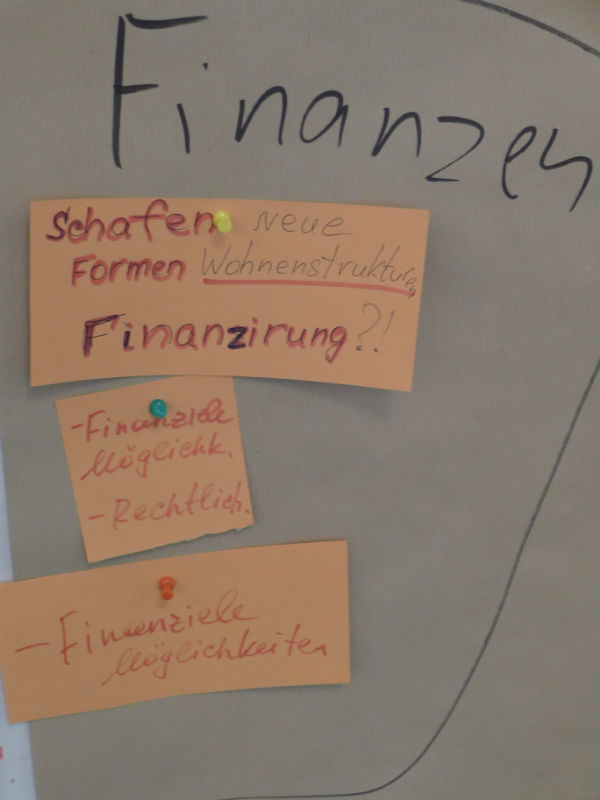 Finanzen
Schafen Neue
Formen Wohnenstrukturen
Finanzirung?!
- Finanziele
Möglichk.
- Rechtlich.
- Finanziele
Möglichkeiten